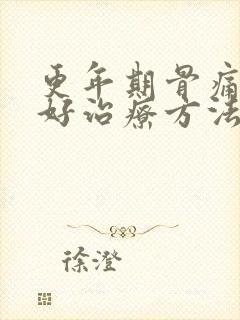 更年期骨痛
好治疗方法
徐澄